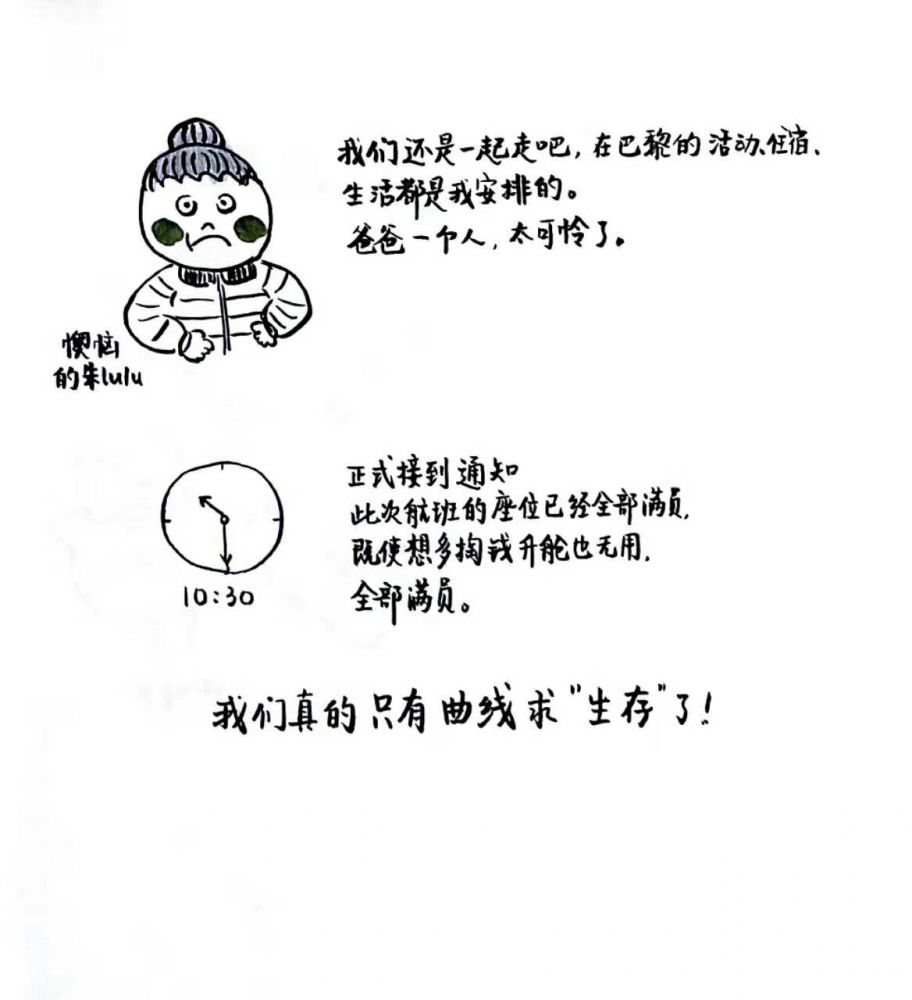 我们还是一起走吧，在巴黎的活动、住宿、
生活都是我安排的。
爸爸一个人，太可怜了。
懊恼
的朱lulu
正式接到通知
此次航班的座位已经全部满员，
既使想多掏钱升舱也无用，
全部满员。
10:30
我们真的只有曲线求"生存"了！